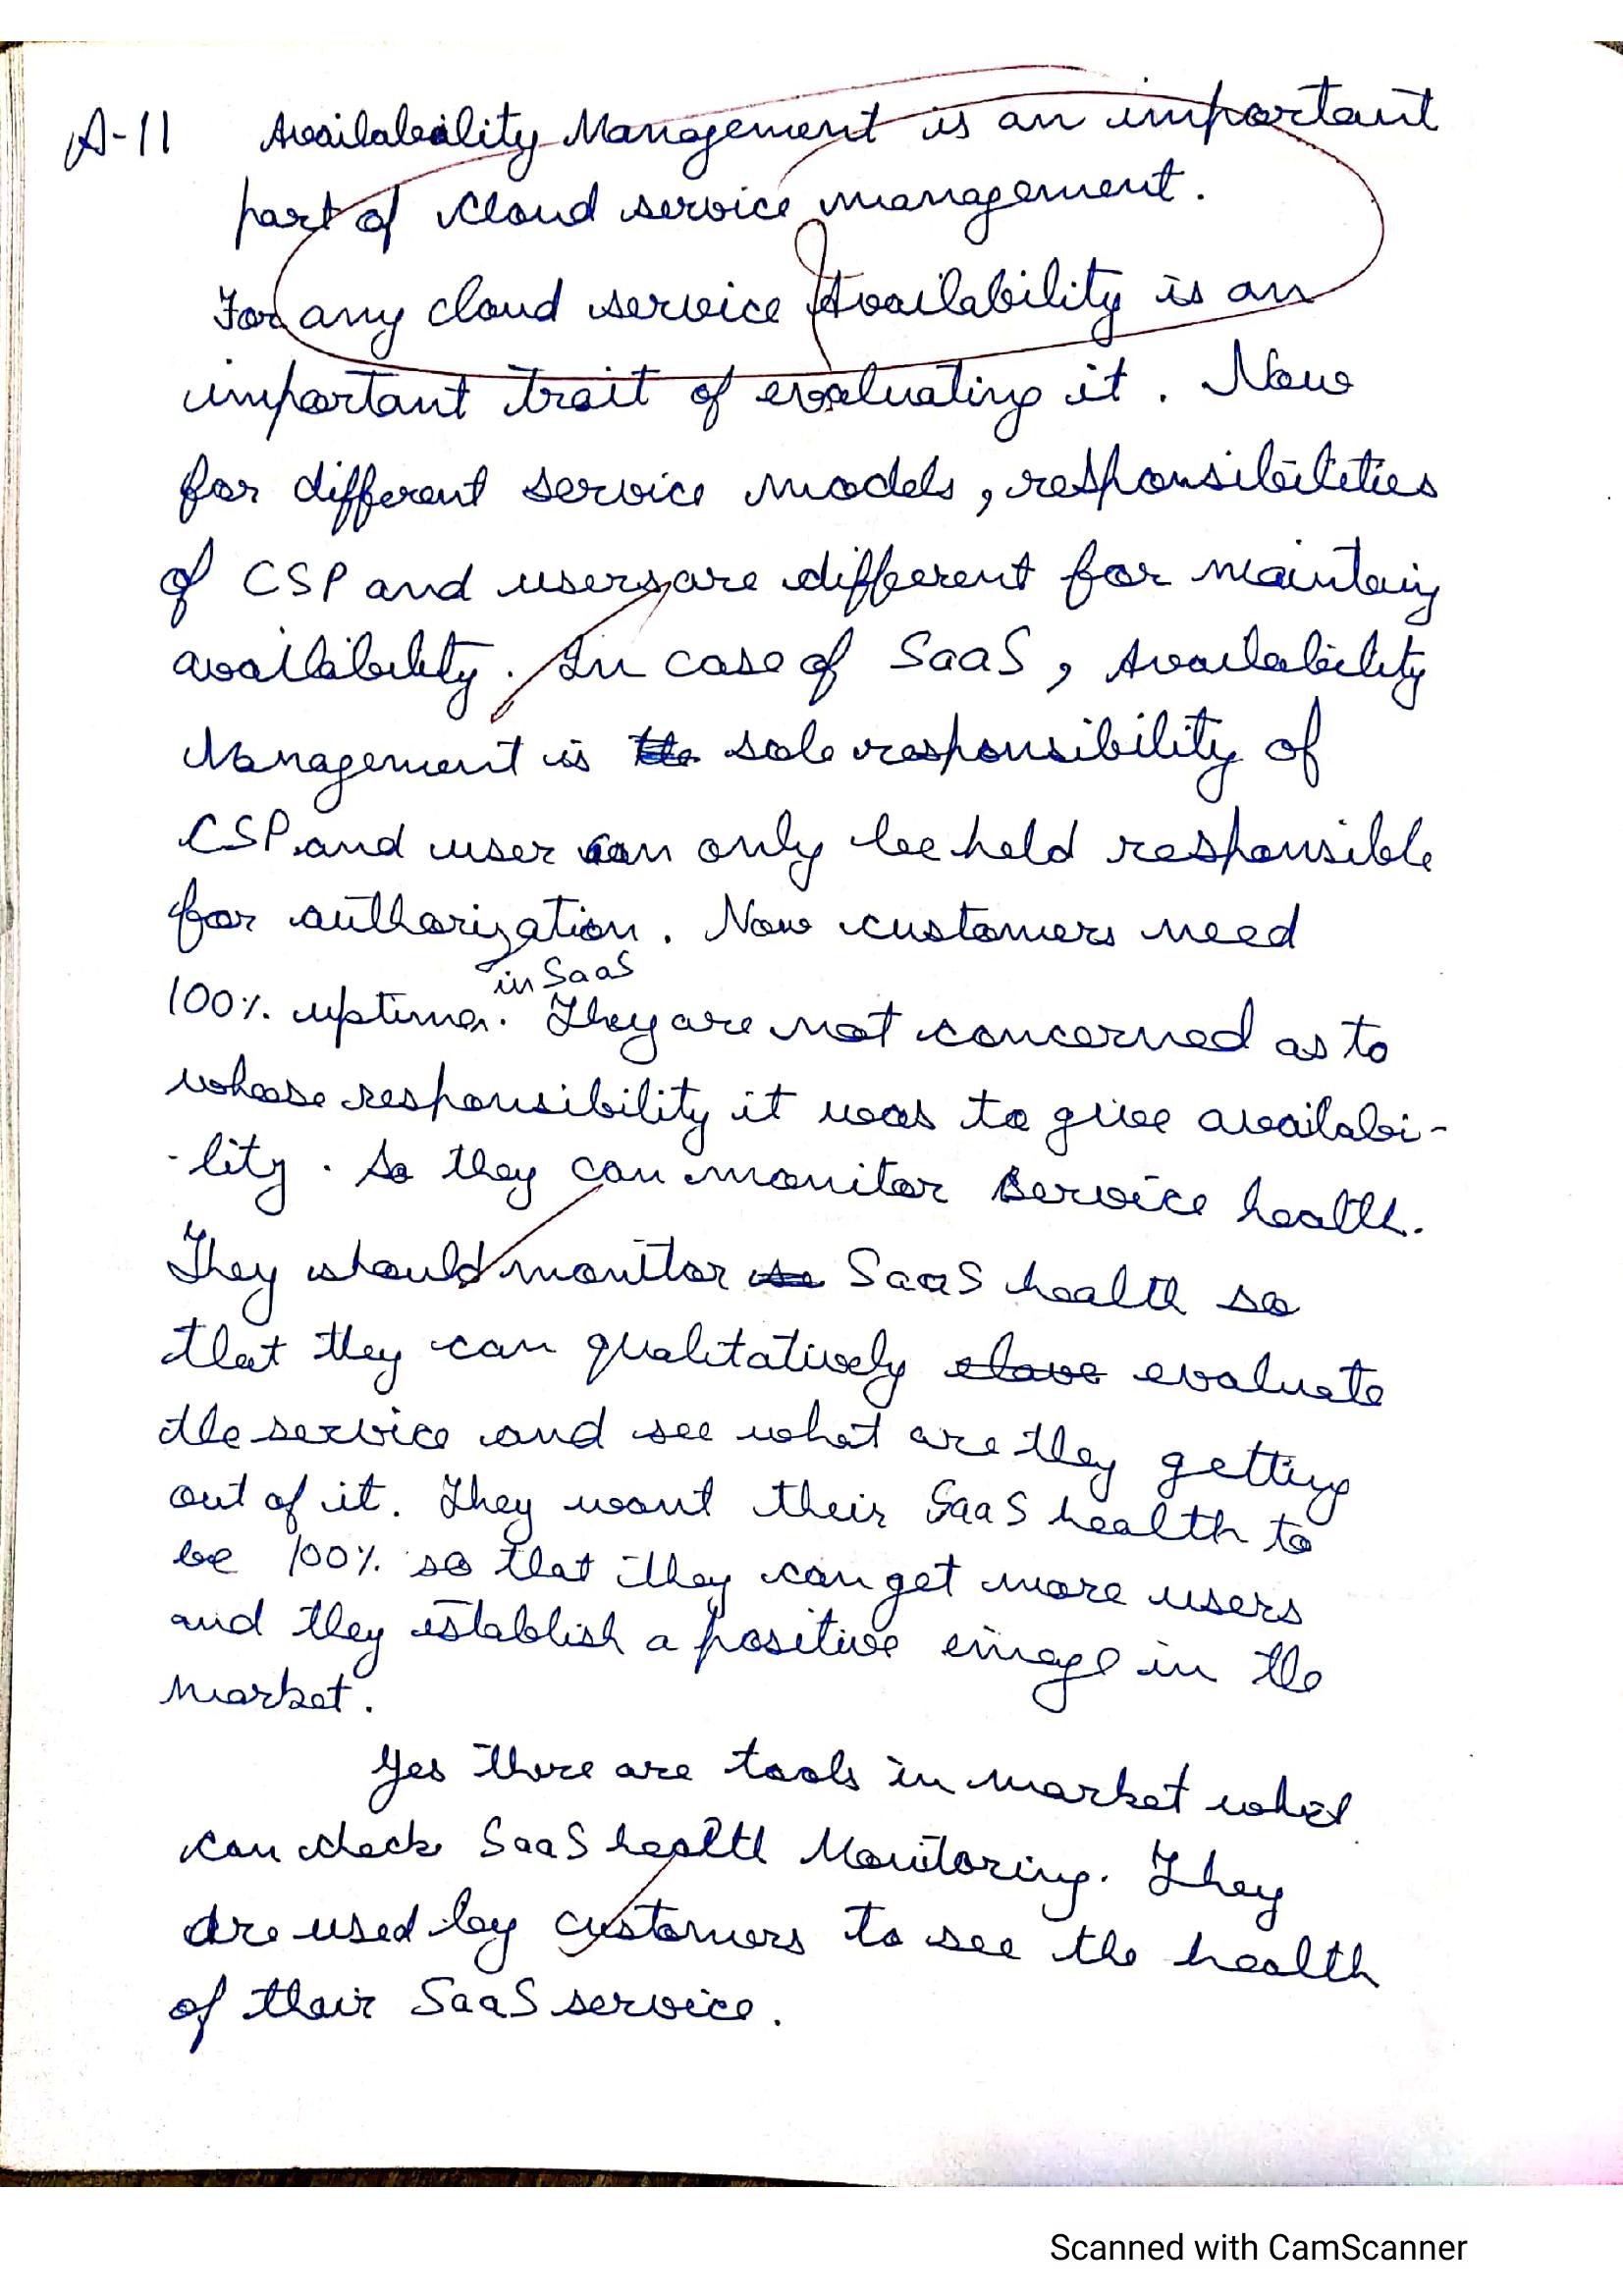 A-11 Availability Management is an important
part of cloud service management.
For any cloud service Availability is an
important trait of evaluating it. Now
for different service models, responsibilities
of CSP and users are different for maintaing
availability. In case of SaaS, Availability
Management is the sole responsibility of
CSP and user can only be held responsible
for authorization. Now customers need
in SaaS
100% uptime. They are not concerned as to
whose responsibility it was to give availabi-
-lity. So they can monitor service health.
They should monitor SaaS health so
that they can qualitatively evaluate
the service and see what are they getting
out of it. They want their SaaS health to
be 100% so that they can get more users
and they establish a positive image in the
market.
Yes there are tools in market which
can check SaaS health Monitoring. They
are used by customers to see the health
of their SaaS service.
Scanned with CamScanner